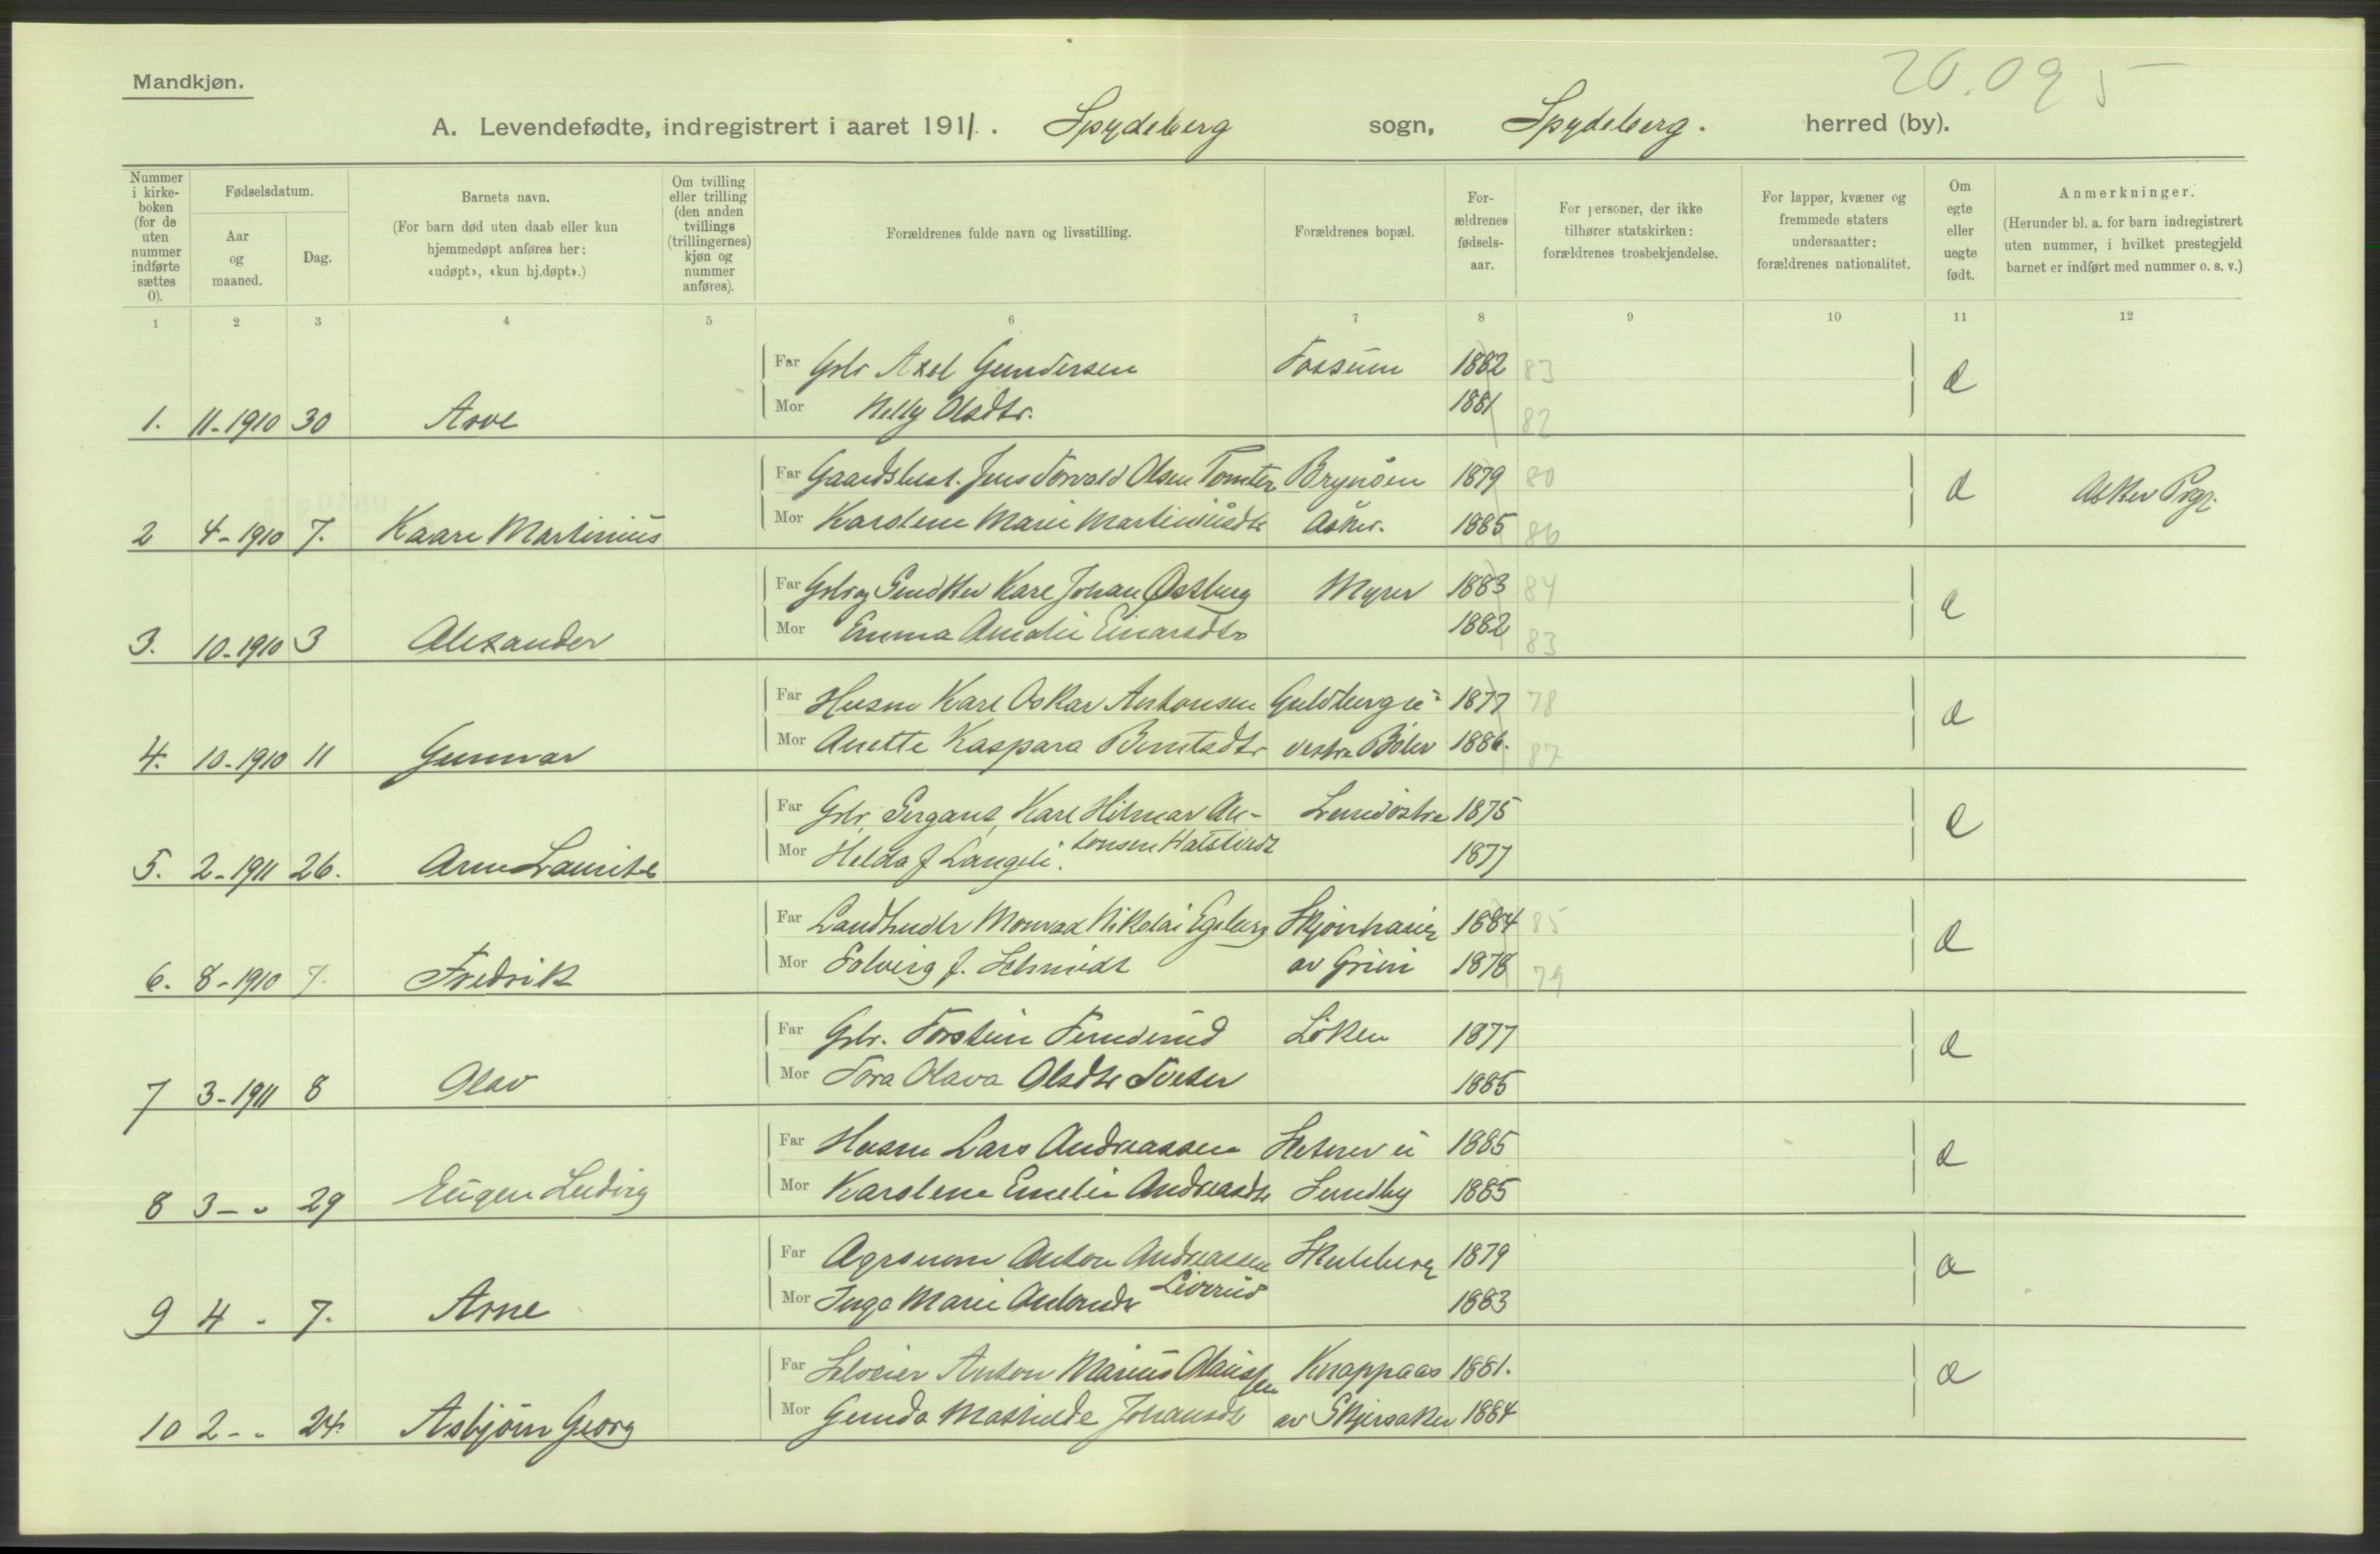 Mandkjøn.
20.095
A. Levendefødte, indregistrert i aaret 1911. Spydeberg sogn, Spydeberg. herred (by).
Nummer i kirkeboken (for de uten nummer indførte sættes 0).
Fødselsdatum.
Aar og maaned.
Dag.
Barnets navn.
(For barn død uten daab eller kun hjemmedøpt anføres her: «udøpt», «kun hj.døpt».)
Om tvilling eller trilling (den anden tvillings (trillingernes) kjøn og nummer anføres).
Forældrenes fulde navn og livsstilling.
Forældrenes bopæl.
Forældrenes fødselsaar.
For personer, der ikke tilhører statskirken: forældrenes trosbekjendelse.
For lapper, kvæner og fremmede staters undersaatter: forældrenes nationalitet.
Om egte eller uegte født.
Anmerkninger.
(Herunder bl. a. for barn indregistrert uten nummer, i hvilket prestegjeld barnet er indført med nummer o. s. v.)
1 2 3 4 5 6 7 8 9 10 11 12
Far Gbr Axel Gundersen Fossum 1882 83
Mor Nelly Olsdtr. 1881 82
1. 11-1910 30 Arve
Far Gaardsbest. Jens Torvald Olsen Tomter Brynsen 1879 80
Mor Karolene Marie Martinusdtr Asker. 1885 86
2 4-1910 7. Kaare Martinius Asker Prgj.
Far Karl Johan Østberg Myrer 1883 84
Mor Emma Amalie Einarsdtr 1882 83
3. 10-1910 3 Alexander
Far Husm Karl Oskar Antonsen Guldberg u 1877 78
Mor Anette Kaspara Berntsdtr vestre Böler 1886. 87
4. 10-1910 11 Gunnar
Far Gbr, Sergant, Karl Hilmar An- Lund østre 1875
tonsen Hatstvedt
Mor Helda J Langeli. 1877
5. 2-1911 26. Arne Lauritz
Far Landhndlr Monrad Nikolai Egeberg Skjønhaug 1884 85
Mor Solveig J. Schmidt av Grini 1878 79
6. 8-1910 7. Fredrik
Far Gbr. Torstein Løken 1877
Mor Tora Olava Olsdtr 1885
7 3-1911 8 Olav
Far Husm Lars Andreassen u 1885
Mor Karolene Emelie Andreasdtr Sundby 1885
8 3-" 29 Eugen Ludvig
Far Agronom Anton Andreassen Skulberg 1879
Liverud
Mor Inga Marie Antonsdtr 1883
9 4 - 7. Arne
Far Selveier Anton Marius Olaussen Knappaas 1881.
Mor Gunda Mathilde Johansdtr av Skjersaker 1884
10 2-" 24. Asbjørn Georg